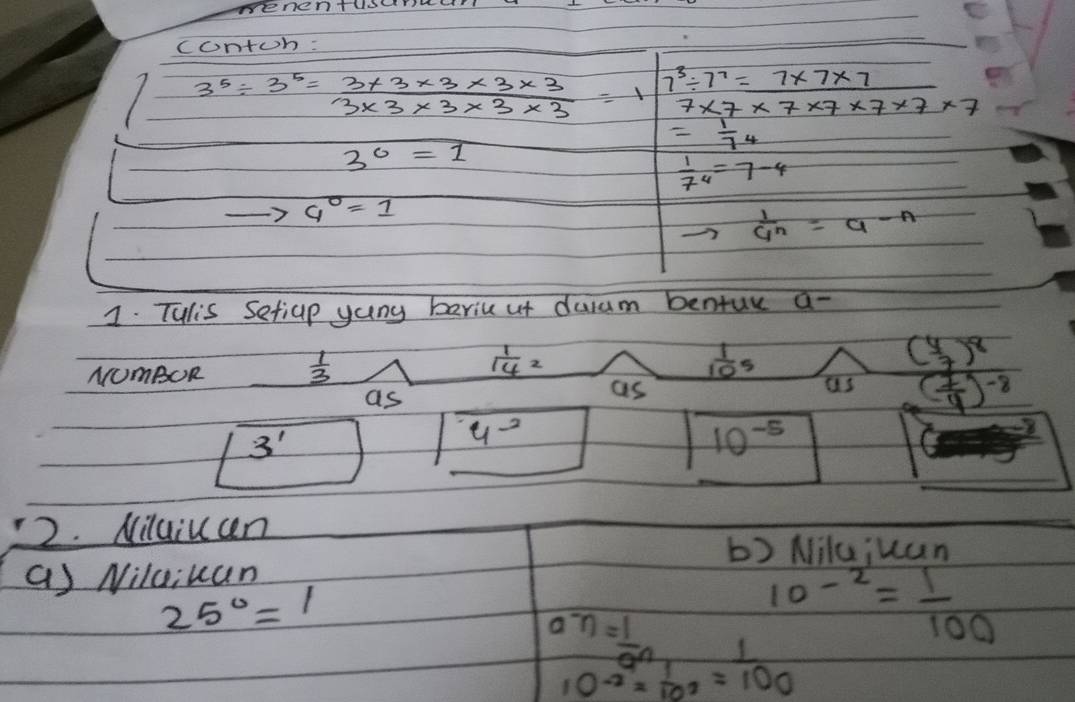 Contoh:
3⁵ ÷ 3⁵ = 3×3×3×3×3 / 3×3×3×3×3 = 1
3⁰ = 1
→ a⁰ = 1
7³ ÷ 7⁷ = 7×7×7 / 7×7×7×7×7×7×7
= 1/7⁴
1/7⁴ = 7-4
→ 1/aⁿ = a-n
1. Tulis Setiap yang berikut dalam bentuk a-
NOMBOR 1/3 1/4² 1/10⁵ (4/7)⁸
as as as
3' 4⁻² 10⁻⁵
2. Nilaikan
a) Nilaikan
25⁰ = 1
b) Nilaikan
10⁻² = 1/100
a⁻ⁿ = 1/aⁿ
10⁻² = 1/10² = 1/100